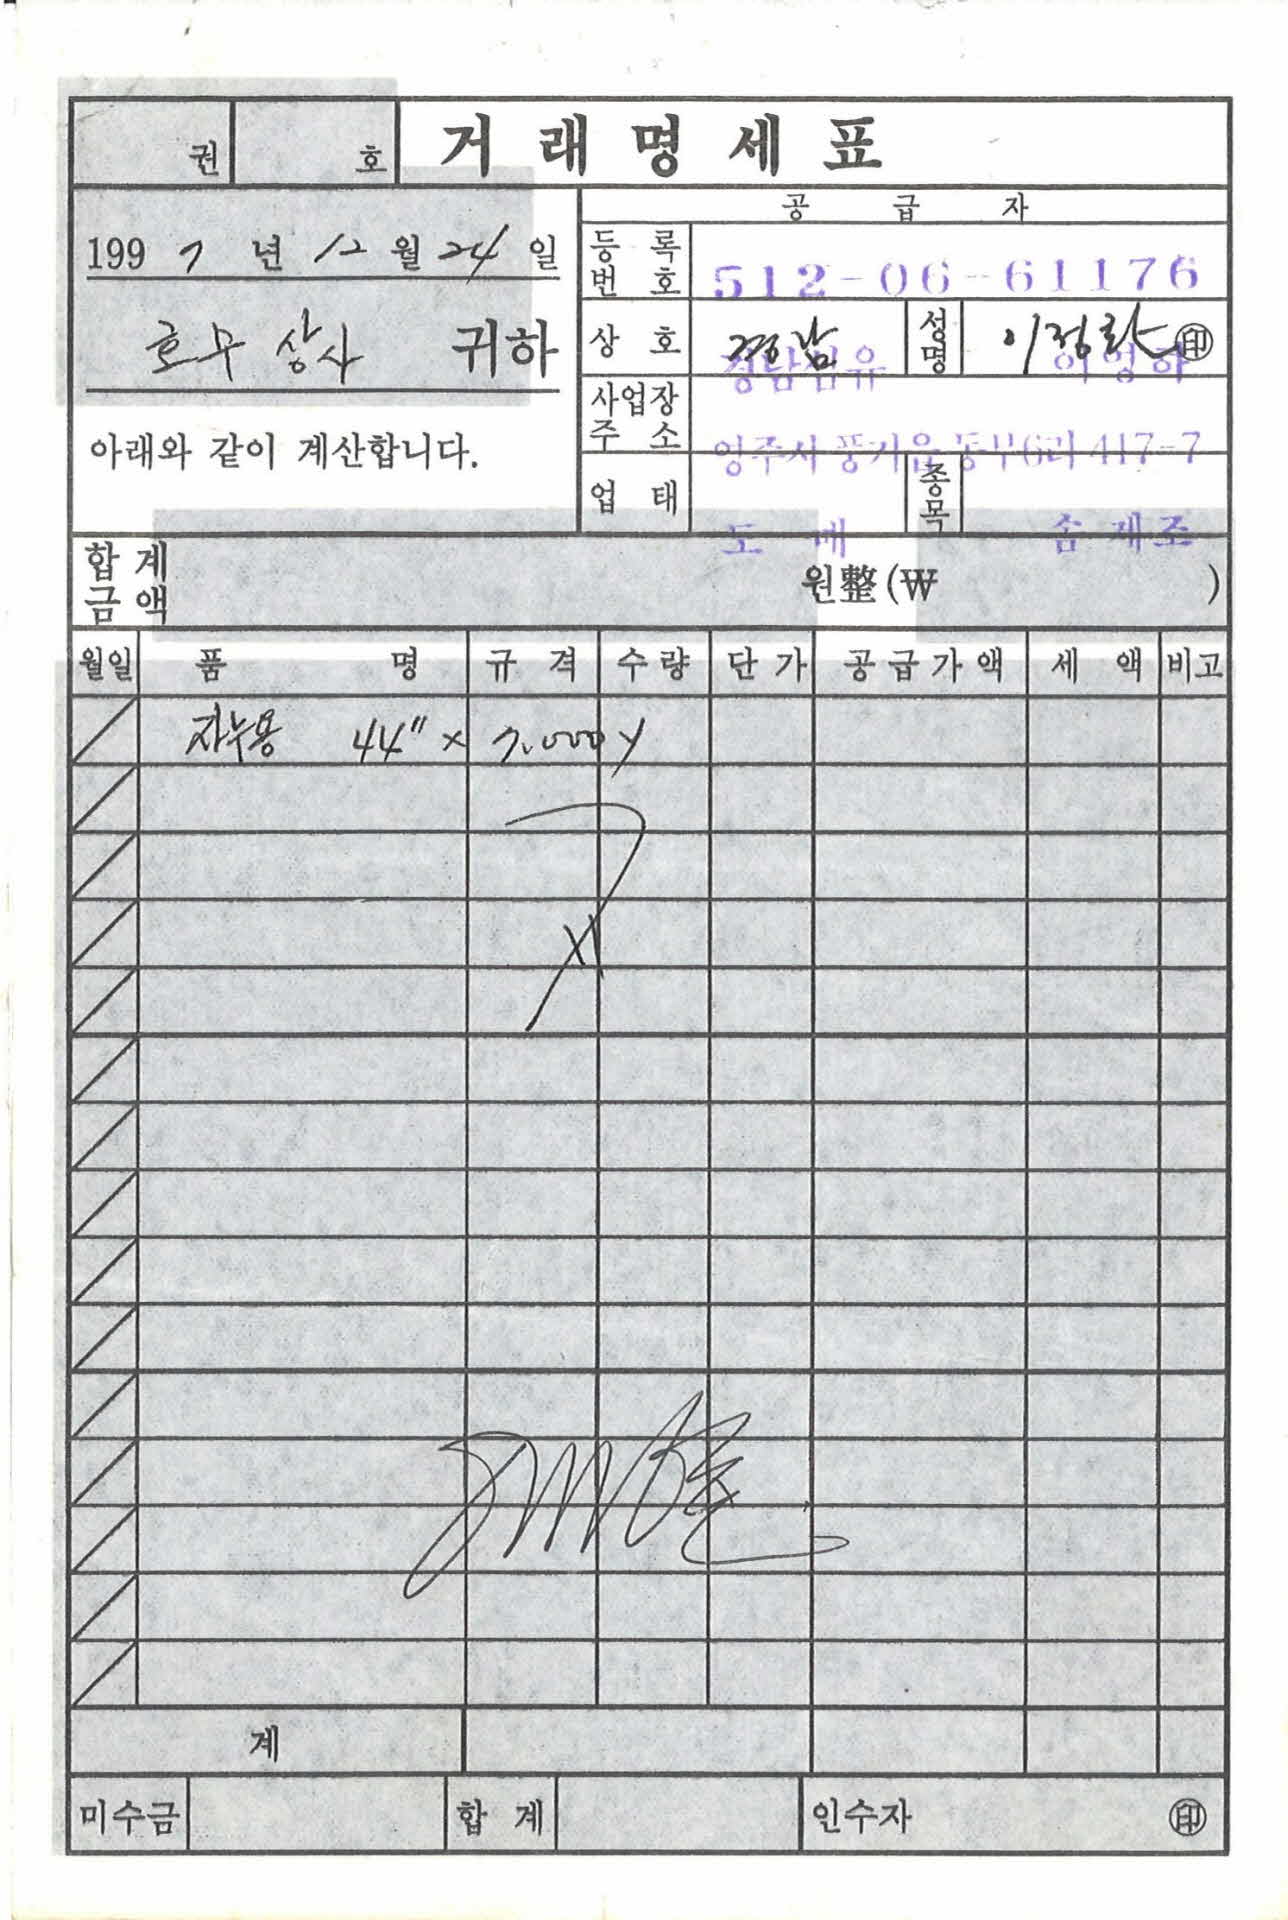 권 호 거래명세표
공 급 자
1997년 12월 24일
등록번호 512-06-61176
호무상사 귀하
상호 경남 성명 이정화 ㊞
경남섬유 이영하
사업장주소 영주시 풍기읍 동부6리 417-7
아래와 같이 계산합니다.
업태 도매 종목 솜제조
합계금액 원整(₩ )
월일 품명 규격 수량 단가 공급가액 세액 비고
자누용 44" × 7.000y
계
미수금 합계 인수자 ㊞